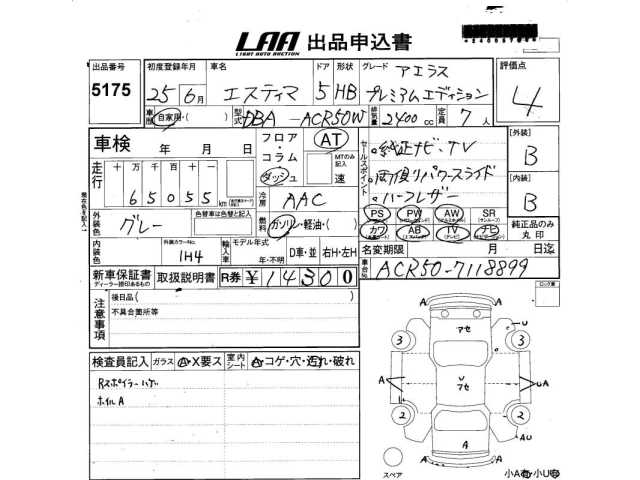 LAA 出品申込書
LIGHT AUTO AUCTION
出品番号 初度登録年月 車名 ドア 形状 グレード アエラス 評価点
5175 25年6月 エスティマ 5 HB プレミアムエディション 4
車歴 自家用・( ) 型式 DBA-ACR50W 排気量 2400cc 定員 7人
車検 年 月 日
フロア・コラム ダッシュ AT MTのみ記入 速
セールスポイント
・純正ナビ、TV
・両側リパワースライド
・ハーフレザー
[外装] B
[内装] B
走行 十 万 千 百 十
65055 km
現在色を記入
冷房 AAC
外装色 グレー 色替車は色替と記入
燃料 ガソリン・軽油・( )
PS PW AW SR (サンルーフ)
カワ AB TV ナビ
純正品のみ丸印
内装色 外装カラーNo. 1H4 輸入車 モデル年式 年・不明 D車・並 右H・左H
名変期限 月 日迄
新車保証書 ディーラー捺印あるもの 取扱説明書 R券 ¥14300
車台No. ACR50-7118899
注意事項 後日品( )
不具合箇所等
ロック棒
検査員記入 ガラス A・X要ス 室内シート A・コゲ・穴・汚れ・破れ
Rスポイラーハゲ
ホイルA
A A
アセ
3 3
A V アセ UA
2 2
A AU
A A A
スペア
小A有・小U有